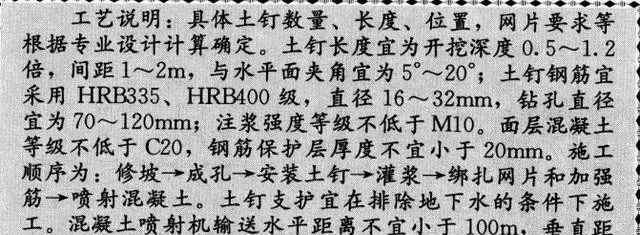 工艺说明：具体土钉数量、长度、位置，网片要求等
根据专业设计计算确定。土钉长度宜为开挖深度0.5～1.2
倍，间距1～2m，与水平面夹角宜为5°～20°；土钉钢筋宜
采用 HRB335、HRB400 级，直径 16～32mm，钻孔直径
宜为70～120mm；注浆强度等级不低于M10。面层混凝土
等级不低于 C20，钢筋保护层厚度不宜小于 20mm。施工
顺序为：修坡→成孔→安装土钉→灌浆→绑扎网片和加强
筋→喷射混凝土。土钉支护宜在排除地下水的条件下施
工。混凝土喷射机输送水平距离不宜小于 100m，垂直距